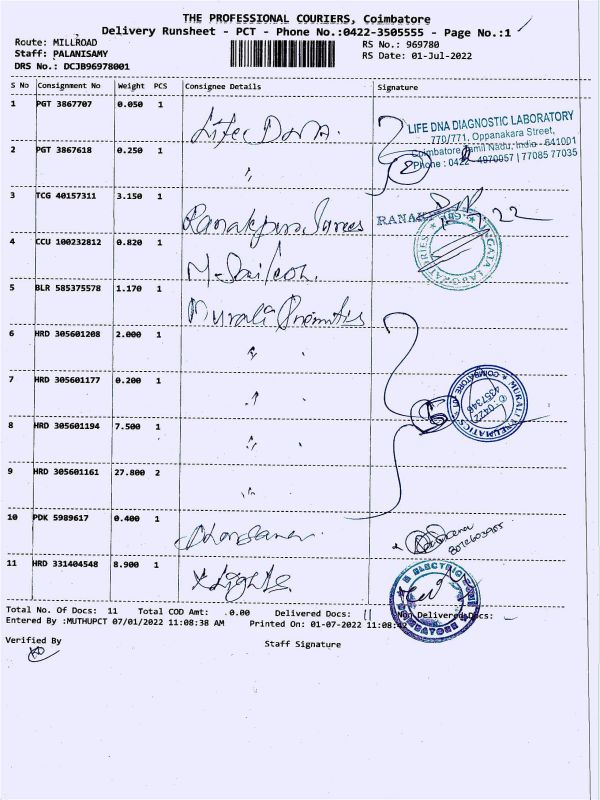 THE PROFESSIONAL COURIERS, Coimbatore
Delivery Runsheet - PCT - Phone No.:0422-3505555 - Page No.:1
Route: MILLROAD
RS No.: 969780
Staff: PALANISAMY
RS Date: 01-Jul-2022
DRS No.: DCJB96978001
S No Consignment No Weight PCS Consignee Details Signature
1 PGT 3867707 0.050 1 Life DNA.
LIFE DNA DIAGNOSTIC LABORATORY
770/771, Oppanakara Street,
Coimbatore, Tamil Nadu, India - 641001
Phone : 0422 - 4970057 | 77085 77035
2 PGT 3867618 0.250 1 "
3 TCG 40157311 3.150 1 Ranakpur
4 CCU 100232812 0.820 1
5 BLR 585375578 1.170 1 Murali
6 HRD 305601208 2.000 1 " "
7 HRD 305601177 0.200 1 " "
8 HRD 305601194 7.500 1 " "
MURALI PNEUMATICS
COIMBATORE
0422
4357346
9 HRD 305601161 27.800 2 " "
10 PDK 5989617 0.400 1
11 HRD 331404548 8.900 1 Lights
ELECTRIC
COIMBATORE
Total No. Of Docs: 11 Total COD Amt: .0.00 Delivered Docs: 11 Non Delivered Docs:
Entered By :MUTHUPCT 07/01/2022 11:08:38 AM Printed On: 01-07-2022 11:08:42
Verified By
Staff Signature